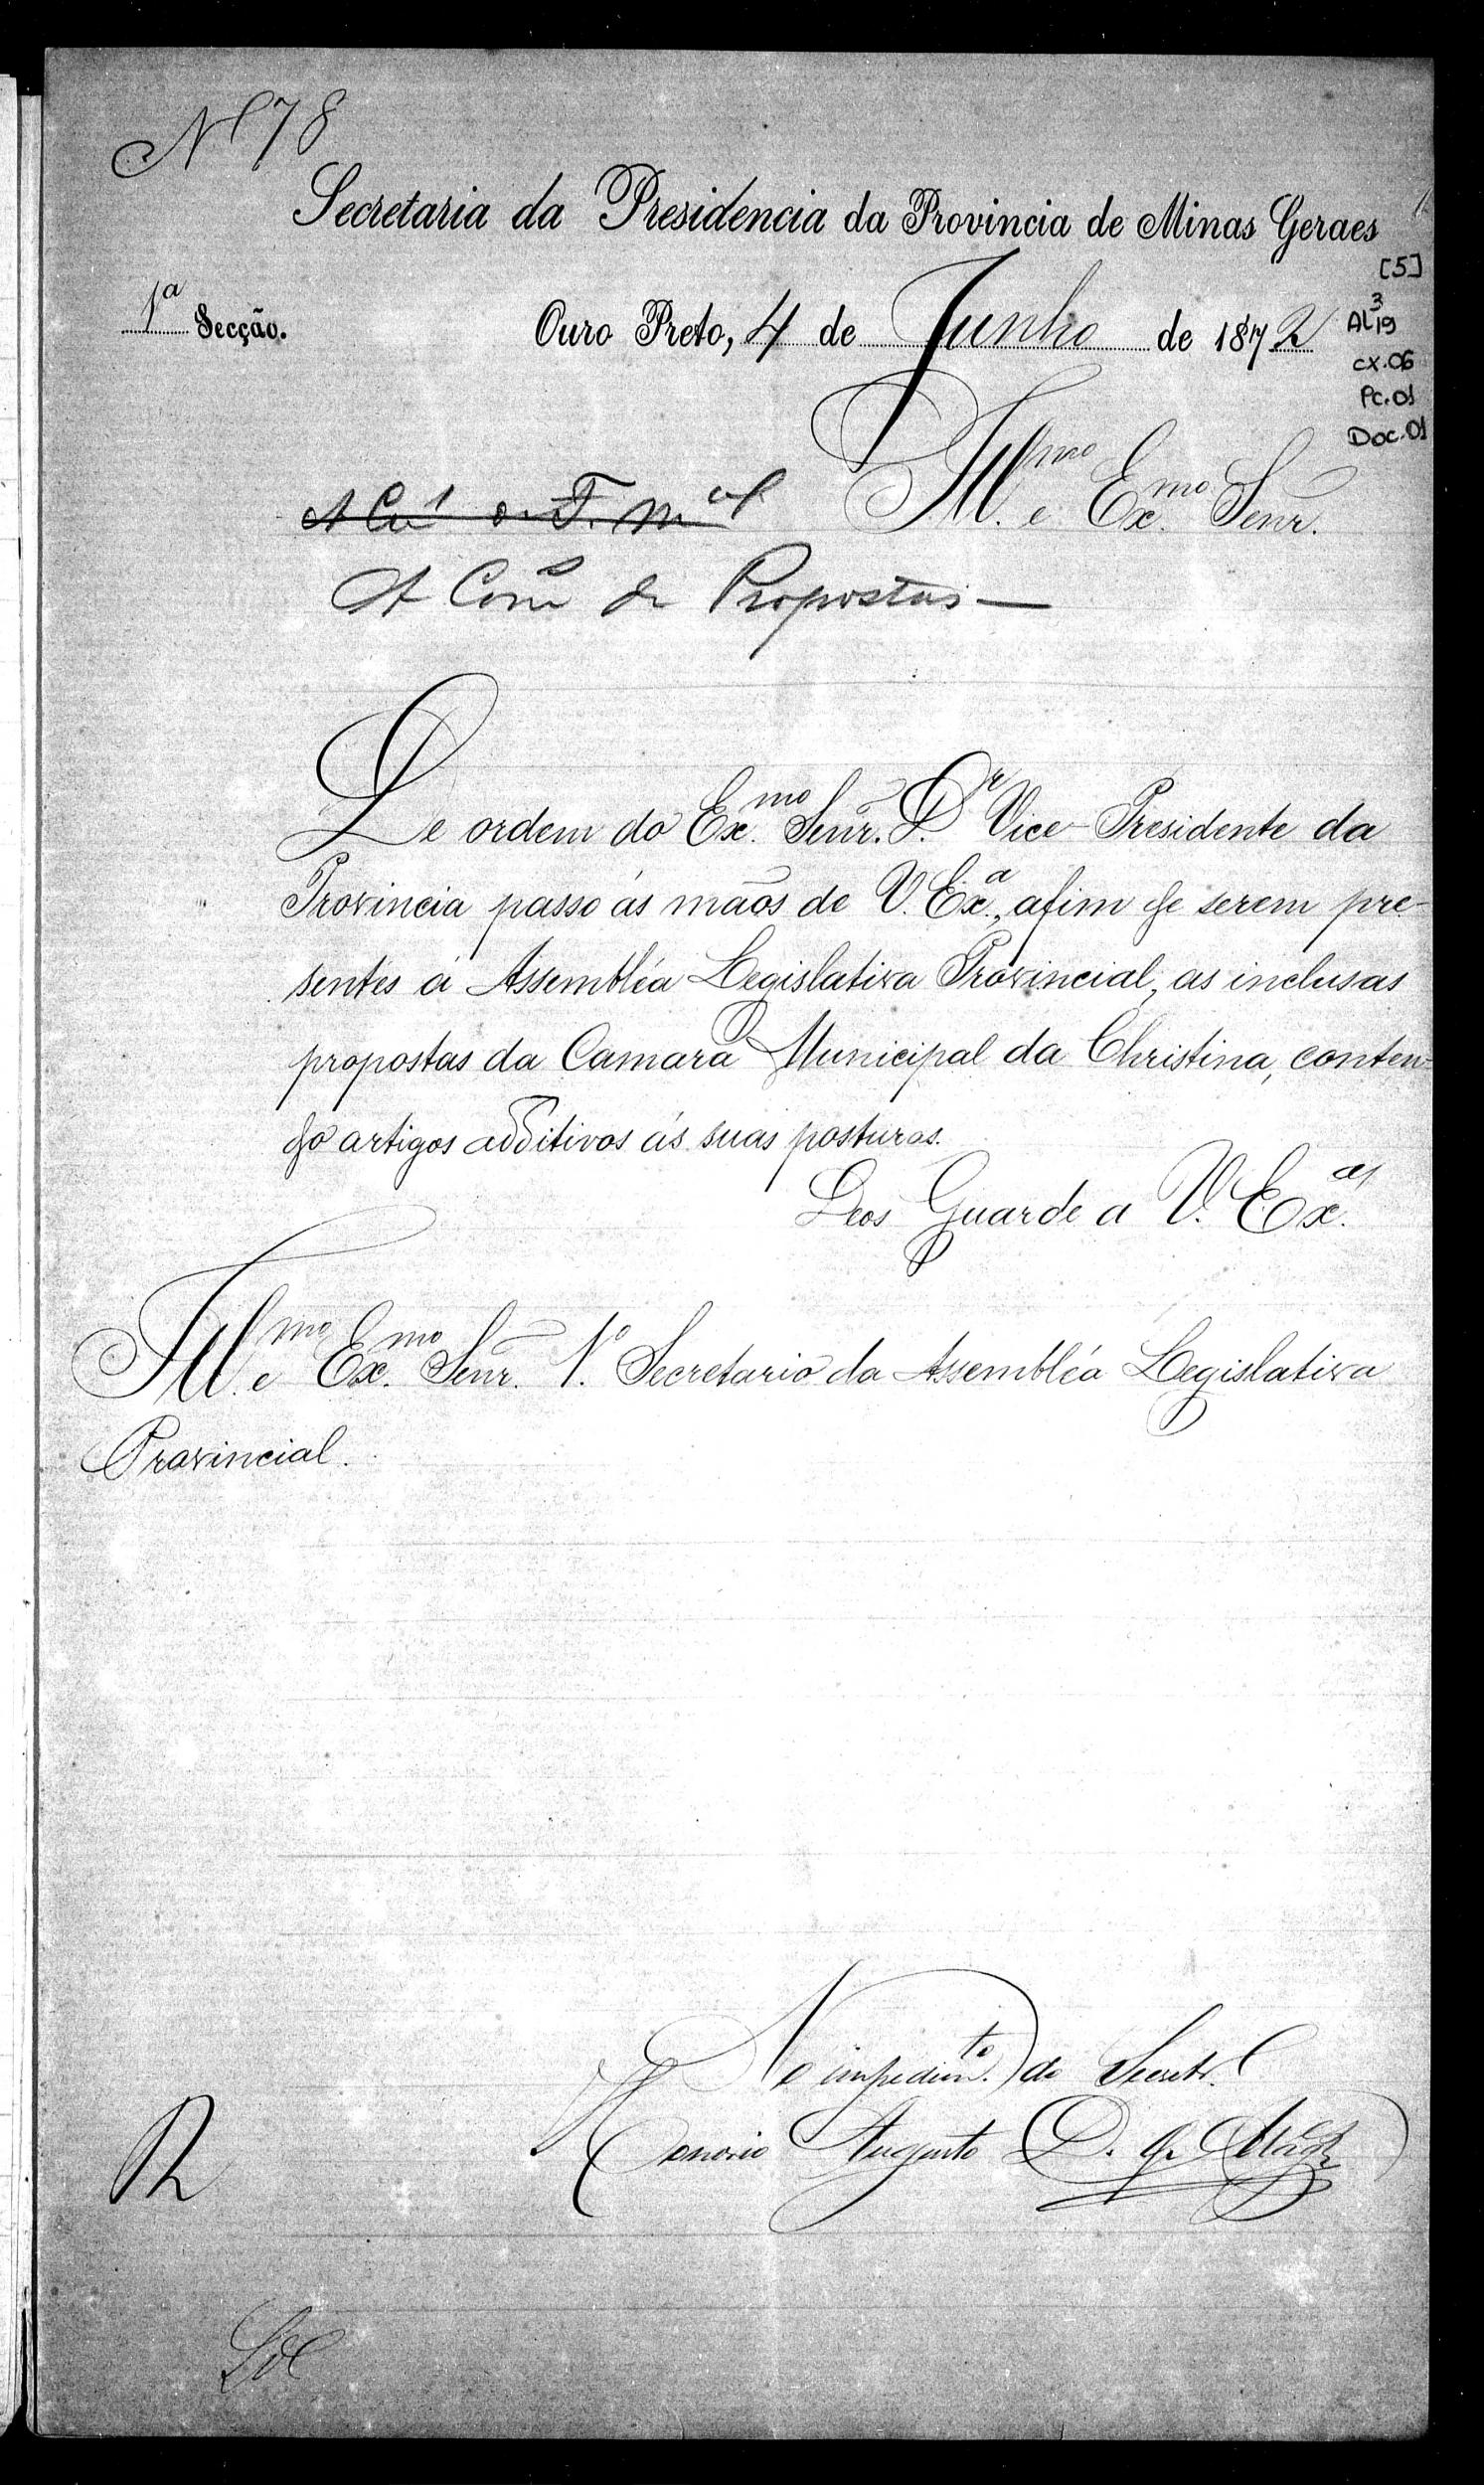 Nº 78
Secretaria da Presidencia da Provincia de Minas Geraes
[5]
1ª Secção.
Ouro Preto, 4 de Junho de 1872
AL³19
cx.06
Pc.01
Doc.01
Illmo. e Exmo. Senr.
A Com de Propostas —
De ordem do Exmo. Senr. Dr. Vice-Presidente da
Provincia passo ás mãos de V. Exª., afim de serem pre-
sentes á Assembléa Legislativa Provincial, as inclusas
propostas da Camara Municipal da Christina, conten-
do artigos additivos ás suas posturas.
Deos Guarde a V. Exª.
Illmo. e Exmo. Senr. 1º. Secretario da Assembléa Legislativa
Provincial.
No impedimto. do Secretr.
Honorio Augusto D. de